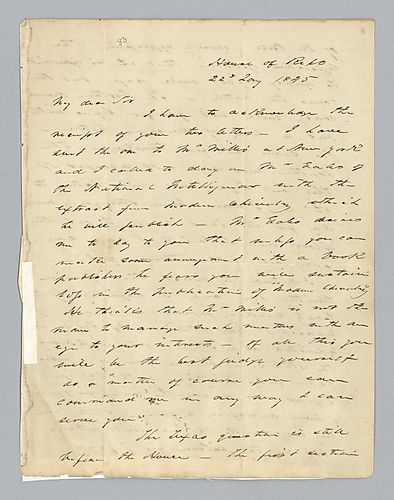 House of Reps
22d Jany 1845
My dear Sir
I have to acknowledge the
receipt of your two letters – I have
sent the one to Mr Willis at New York
and I called to day on Mr Gales of
the National Intelligencer with the
extract from Modern Chivalry which
he will publish – Mr Gales desires
me to say to you that unless you can
make some arrangement with a book
publisher he fears you will sustain
loss in the publication of "Modern Chivalry"
He thinks that Mr Willis is not the
man to manage such matters with an
eye to your interests – of all this you
will be the best judge yourself
as a "matter of course you can
command me in any way I can
serve you".
The Texas question is still
before the House – The first section